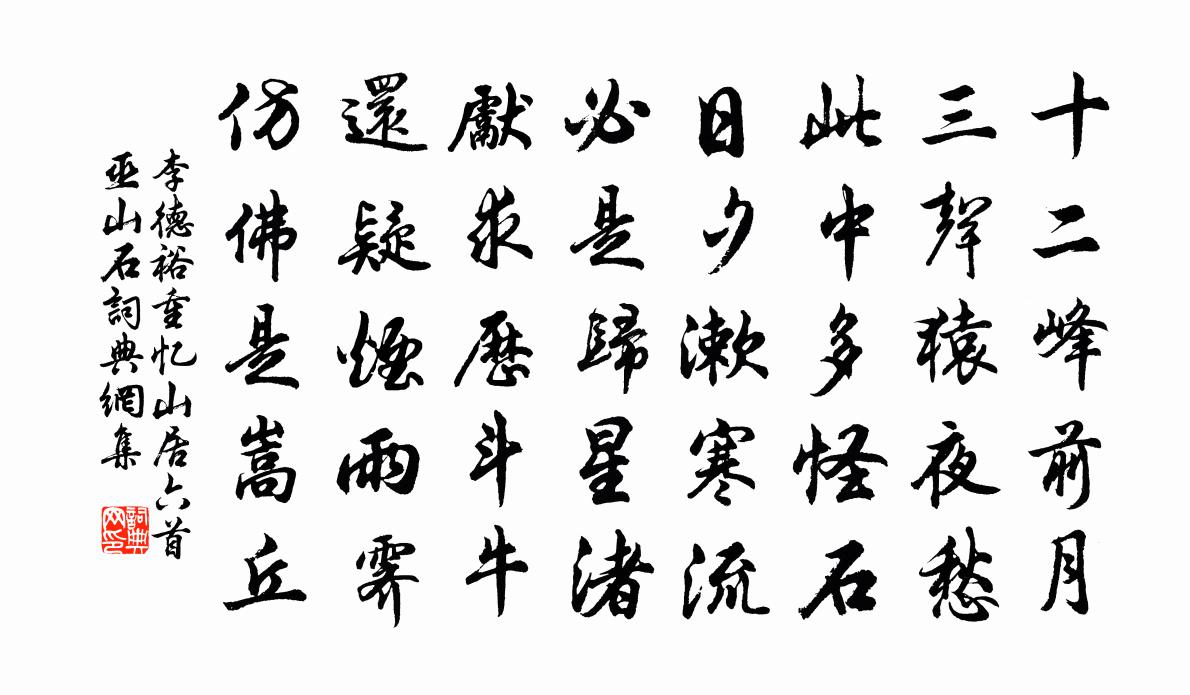 十二峰前月
三聲猿夜愁
此中多怪石
日夕漱寒流
必是歸星渚
獻求歷斗牛
還疑煙雨霽
仿佛是嵩丘
李德裕重忆山居六首
巫山石詞典網集
詞典網印